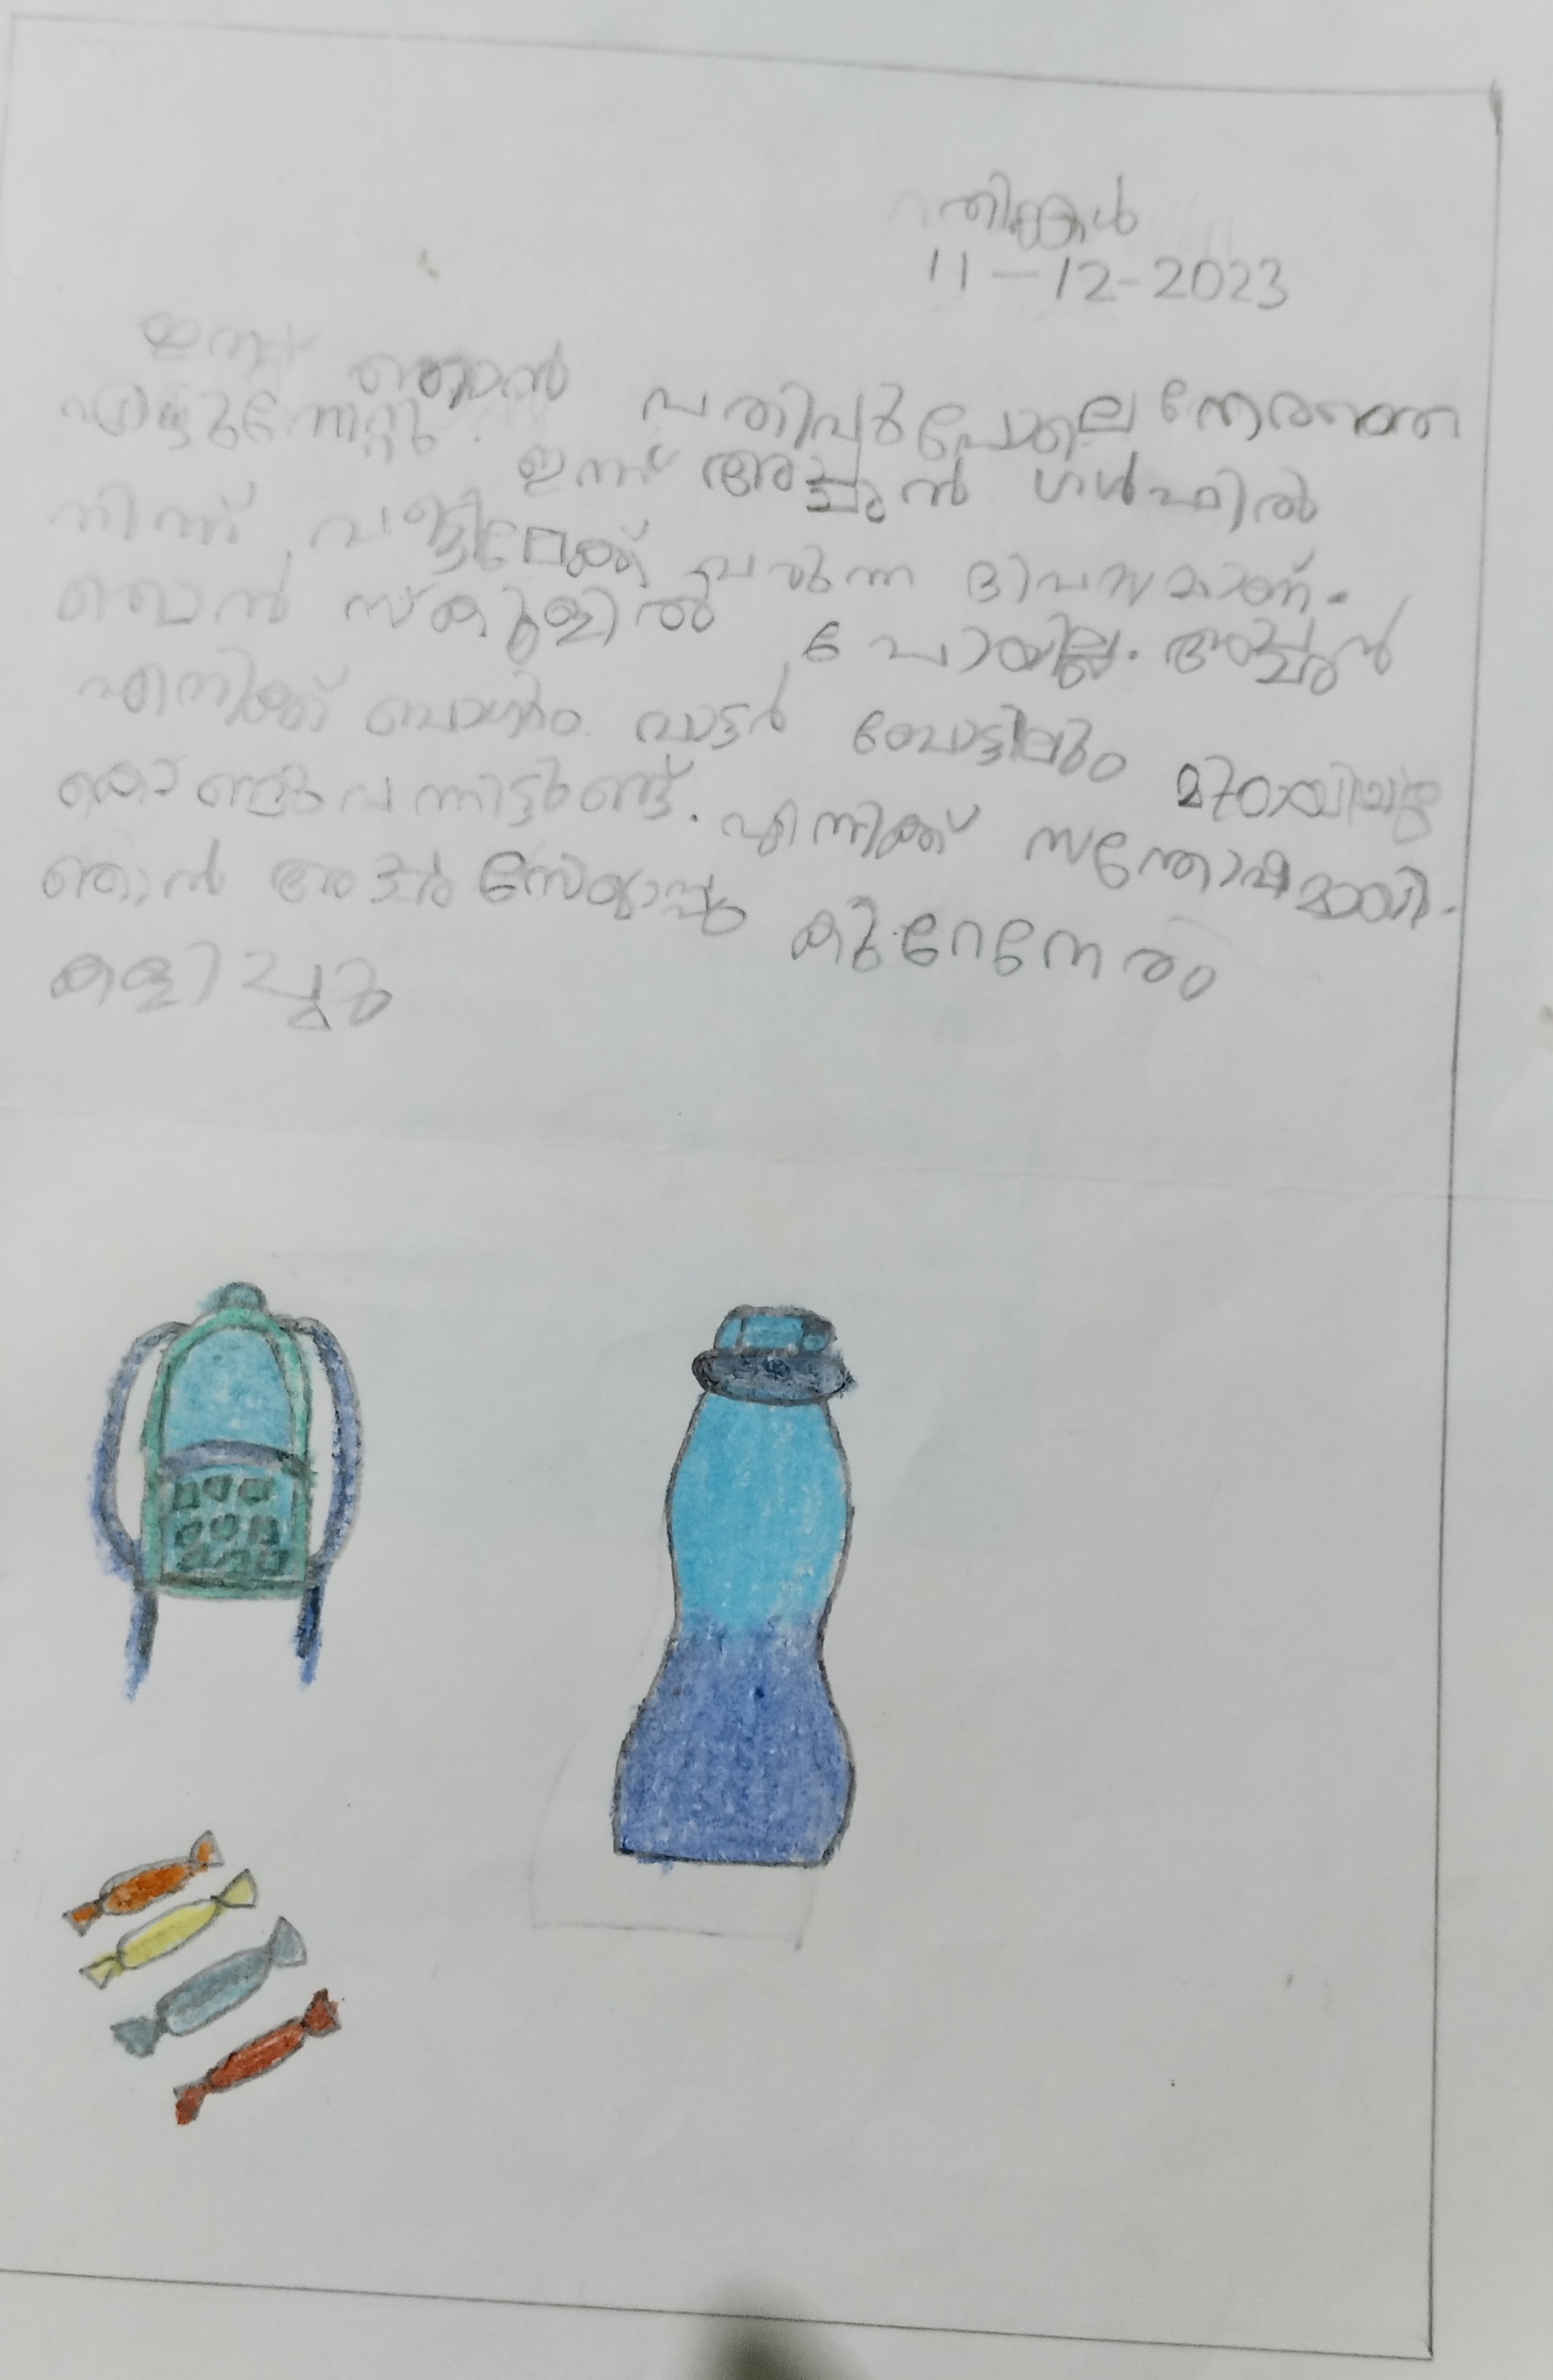 തിങ്കൾ
11-12-2023
ഇന്ന് ഞാൻ പതിവുപോലെ നേരത്തെ
എഴുന്നേറ്റു. ഇന്ന് അച്ഛൻ ഗൾഫിൽ
നിന്ന് വീട്ടിലേക്ക് വരുന്ന ദിവസമാണ്.
ഞാൻ സ്കൂളിൽ പോയില്ല. അച്ഛൻ
എനിക്ക് ബാഗും വാട്ടർ ബോട്ടിലും മിഠായിയും
കൊണ്ടുവന്നിട്ടുണ്ട്. എനിക്ക് സന്തോഷമായി.
ഞാൻ കുറേനേരം
കളിച്ചു